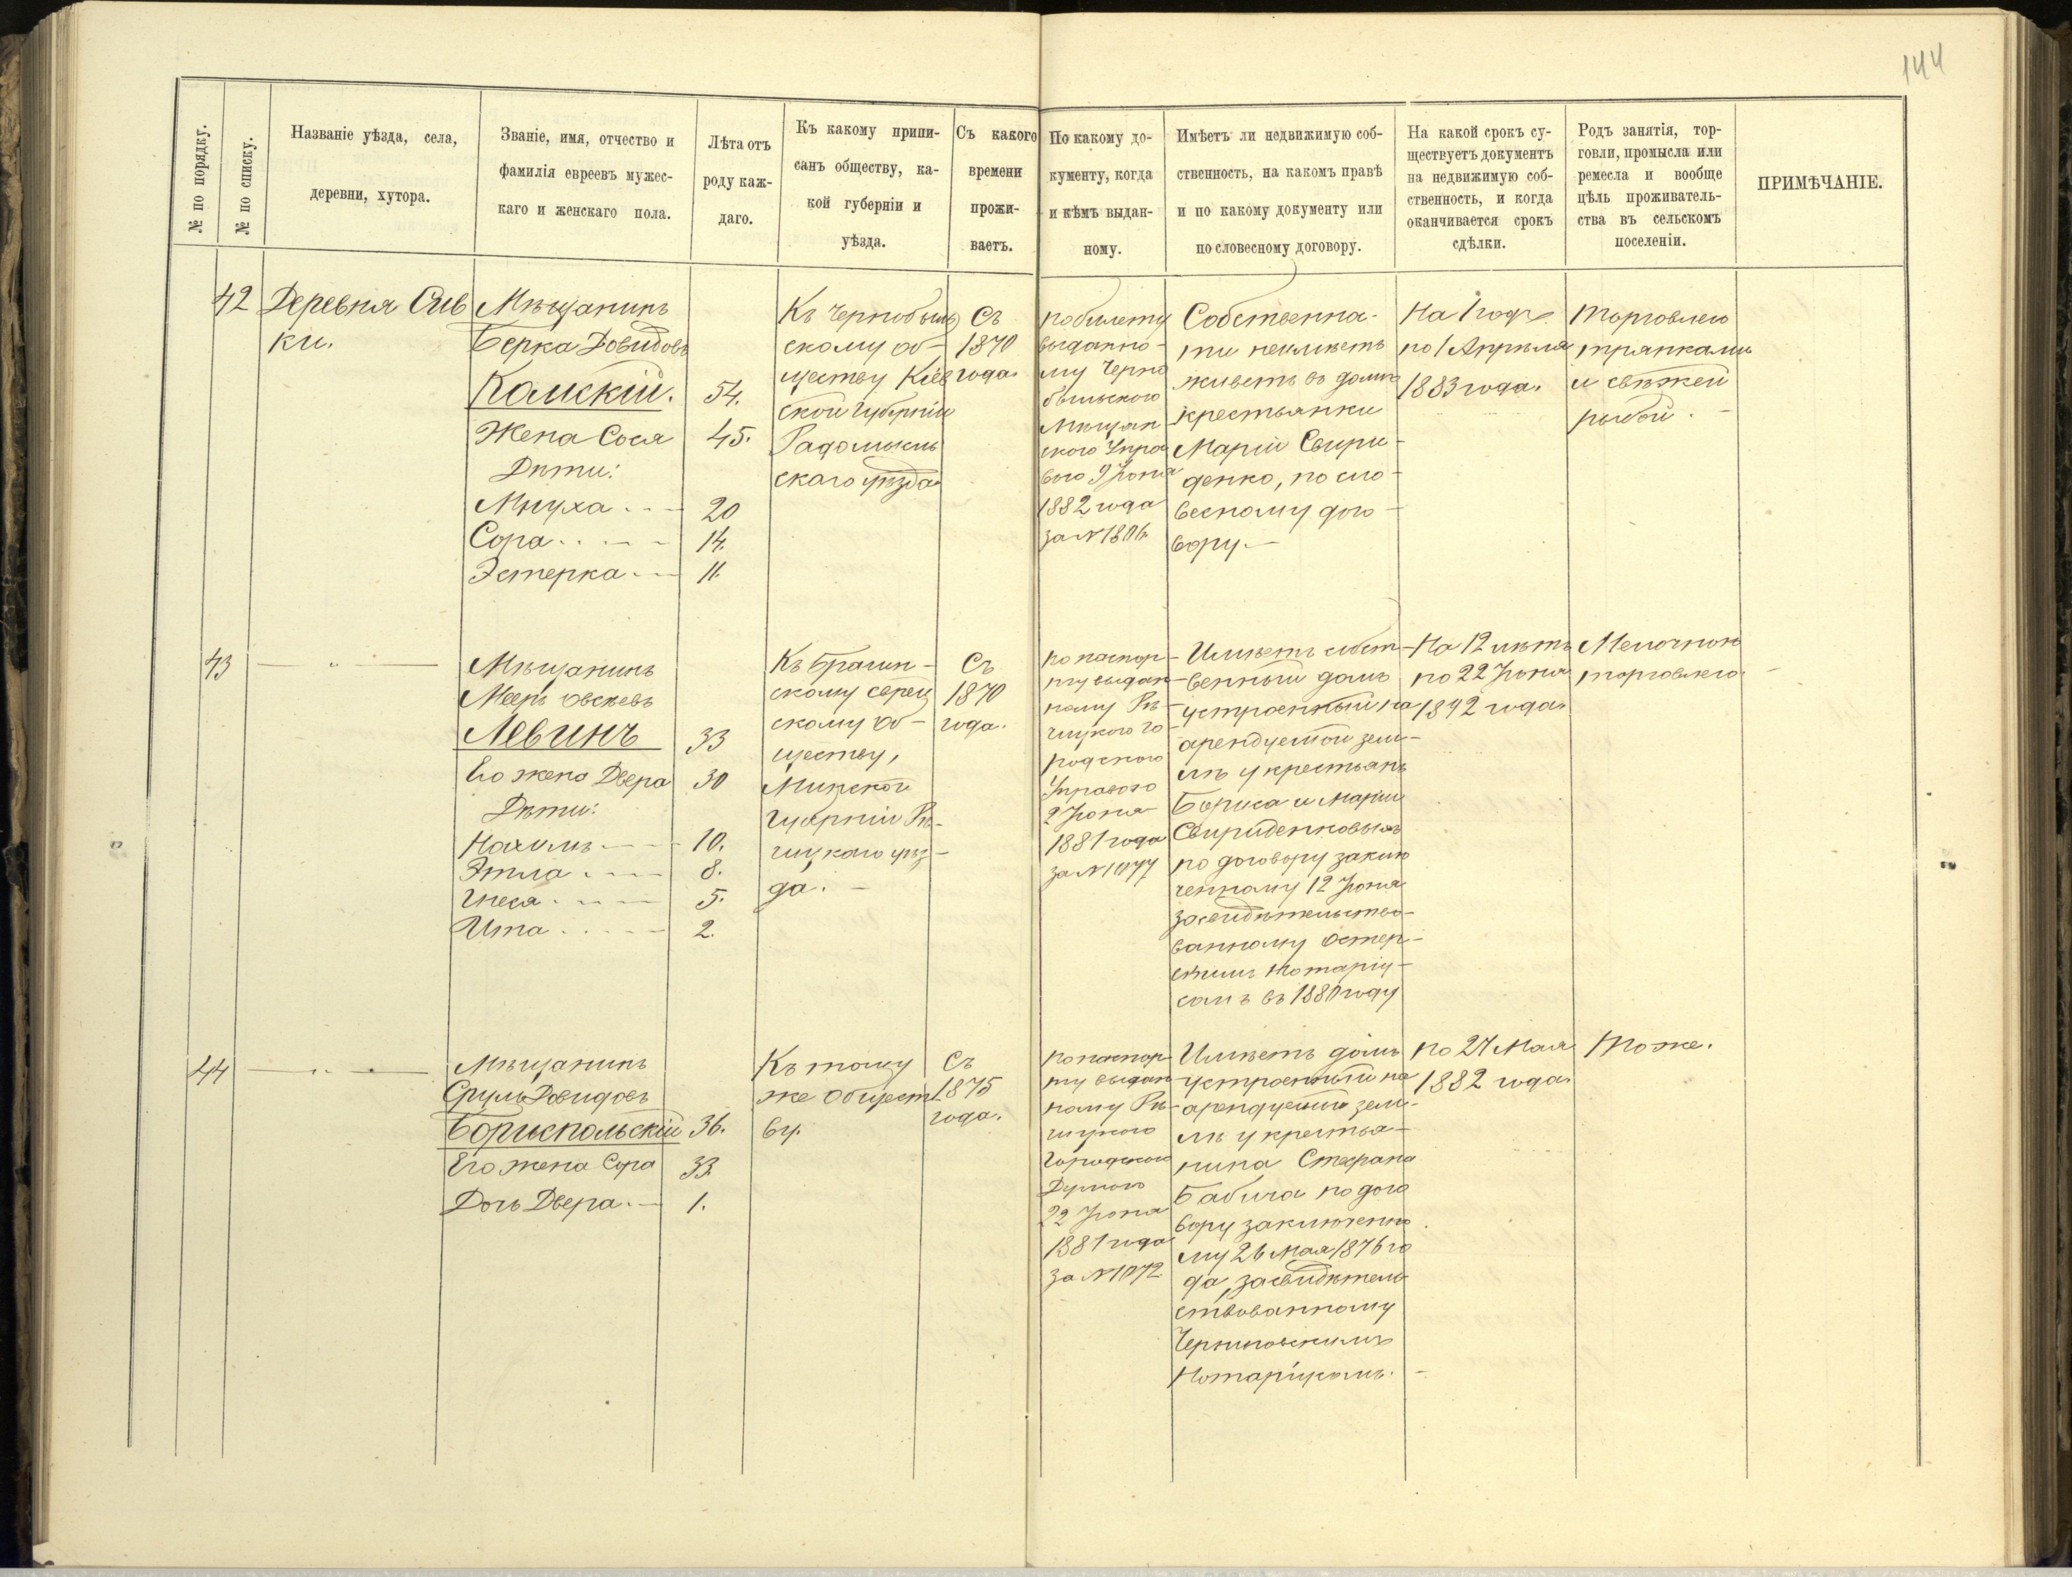 144
№ по порядку.
№ по списку.
Названіе уѣзда, села,
деревни, хутора.
Званіе, имя, отчество и
фамилія евреевъ мужес-
каго и женскаго пола.
Лѣта отъ
роду каж-
даго.
Къ какому припи-
санъ обществу, ка-
кой губерніи и
уѣзда.
Съ какого
времени
прожи-
ваетъ.
По какому до-
кументу, когда
и кѣмъ выдан-
ному.
Имѣетъ ли недвижимую соб-
ственность, на какомъ правѣ
и по какому документу или
по словесному договору.
На какой срокъ су-
ществуетъ документъ
на недвижимую соб-
ственность, и когда
оканчивается срокъ
сдѣлки.
Родъ занятія, тор-
говли, промысла или
ремесла и вообще
цѣль проживатель-
ства въ сельскомъ
поселеніи.
ПРИМѢЧАНІЕ.
42
Деревня Сив
ки.
Мѣщанинъ
Берка Довидовъ
Камскій. 54.
Жена Сося 45.
Дѣти:
Мнуха 20
Сора 14.
Эстерка 11.
Къ Чернобыль
скому об-
ществу Кіев
ской губерніи
Радомысль
скаго уѣзда
Съ
1870
года.
по билету
выданно-
му Черно
быльскою
Мѣщан
скою Упра
вою 9 Іюня
1882 года
за № 1806
Собственно-
сти неимѣетъ
живетъ въ домѣ
крестьянки
Маріи Свири-
денко, по сло-
весному дого-
вору.-
На 1 годъ
по 1 Апрѣля
1883 года.
Торговлею
тряпками
и свѣжей
рыбой.
43
Мѣщанинъ
Мееръ Овсѣевъ
Левинъ 33
Его жена Двера 30
Дѣти:
Нахимъ 10.
Этла 8.
Гнеся 5.
Ита 2.
Къ Брагин-
скому еврей
скому об-
ществу,
Минской
губерніи Рѣ-
чицкаго уѣз-
да.-
Съ
1870
года.
по паспор-
ту выдан-
ному Рѣ-
чицкою Го-
родскою
Управою
2 Іюня
1881 года
за № 1077
Имѣетъ собст-
венный домъ
устроенный на
арендуемой зем-
лѣ у крестьянъ
Бориса и Маріи
Свириденковыхъ
по договору заклю
ченному 12 Іюня
засвидѣтельство-
ванному Остер-
скимъ Нотаріу-
сомъ въ 1880 году
На 12 лѣтъ
по 22 Іюня
1892 года.
Мелочною
торговлею.
44
Мѣщанинъ
Сруль Довидовъ
Бориспольскій 36.
Его жена Сора 33.
Дочь Двера. 1.
Къ тому
же общест
ву.
Съ
1875
года.
по паспор-
ту выдан
ному Рѣ-
чицкою
Городскою
Думою
22 Іюня
1881 года
за № 1072
Имѣетъ домъ
устроенный на
арендуемой зем-
лѣ у крестья-
нина Стефана
Бабича по дого
вору заключенно
му 26 Мая 1876 го
да, засвидѣтель
ствованному
Черниговскимъ
Нотаріусомъ.
по 27 Мая
1882 года.
Тоже.